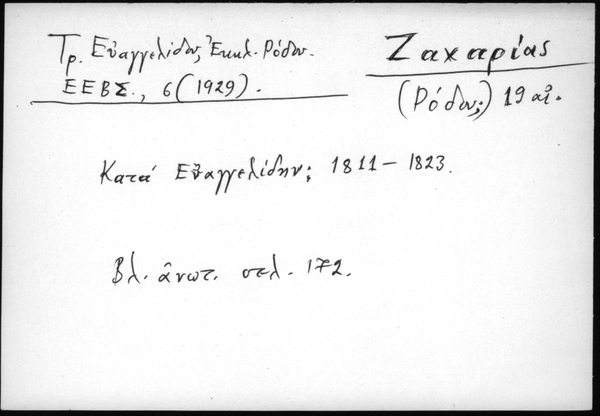 Τρ. Εὐαγγελίδου, Ἐκκλ. Ρόδου.
ΕΕΒΣ., 6 (1929).
Ζαχαρίας
(Ρόδου;) 19 αἰ.
Κατά Εὐαγγελίδην; 1811 – 1823.
Βλ. ἀνωτ. σελ. 172.